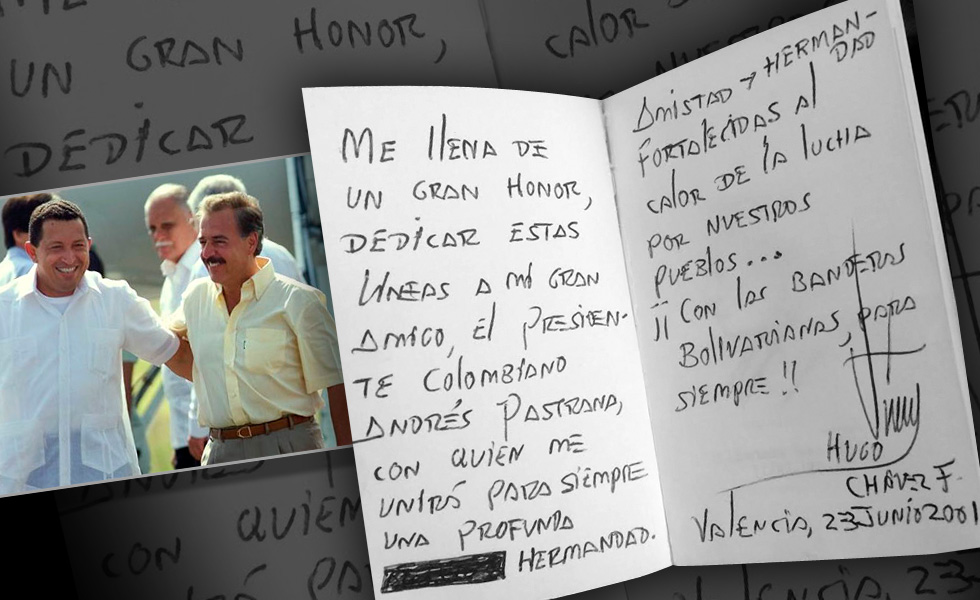 ME llENA DE
UN GRAN HONOR,
DEDICAR ESTAS
LÍNEAS A MI GRAN
AMIGO, El PRESIDEN-
TE COLOMBIANO
ANDRÉS PASTRANA,
CON QUIÉN ME
UNIRÁ PARA SIEMPRE
UNA PROFUNDA
HERMANDAD.
AMISTAD y HERMAN-
DAD
FORTALECIDAS Al
CALOR DE lA lUCHA
POR NUESTROS
PUEBLOS...
¡¡ CON lAS BANDERAS
BOLIVARIANAS, PARA
SIEMPRE !!
HUGO
CHÁVEZ F.
VALENCIA, 23 JUNIO 2001
UN GRAN HONOR,
DEDICAR
CALOR
CON QUIÉN